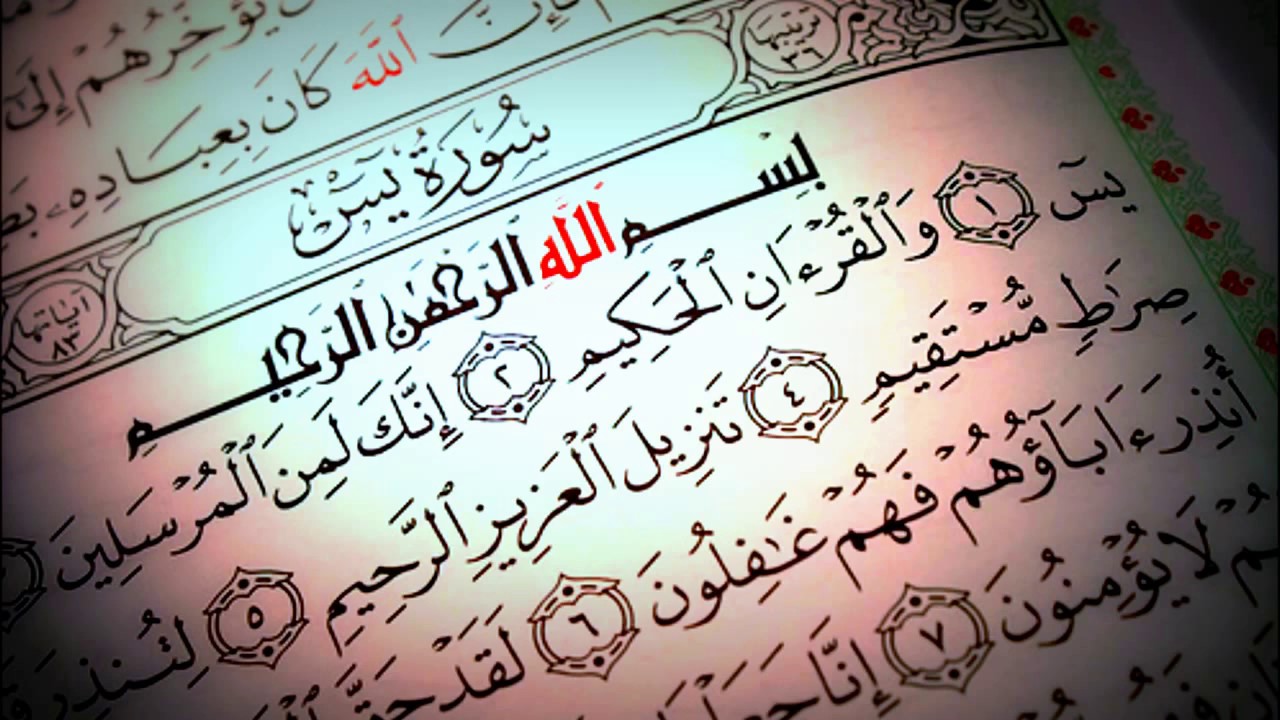 يُؤَخِّرُهُمْ إِلَىٰٓ
فَإِنَّ ٱللَّهَ كَانَ بِعِبَادِهِۦ
ترتيبها ٣٦
سُورَةُ يسٓ
آياتها ٨٣
بِسْمِ اللَّهِ الرَّحْمَٰنِ الرَّحِيمِ
يسٓ ١ وَٱلْقُرْءَانِ ٱلْحَكِيمِ ٢ إِنَّكَ لَمِنَ ٱلْمُرْسَلِينَ
صِرَٰطٍ مُّسْتَقِيمٍ ٤ تَنزِيلَ ٱلْعَزِيزِ ٱلرَّحِيمِ ٥ لِتُنذِرَ
أُنذِرَ ءَابَآؤُهُمْ فَهُمْ غَٰفِلُونَ ٦ لَقَدْ حَقَّ
لَا يُؤْمِنُونَ ٧ إِنَّا جَعَلْنَا